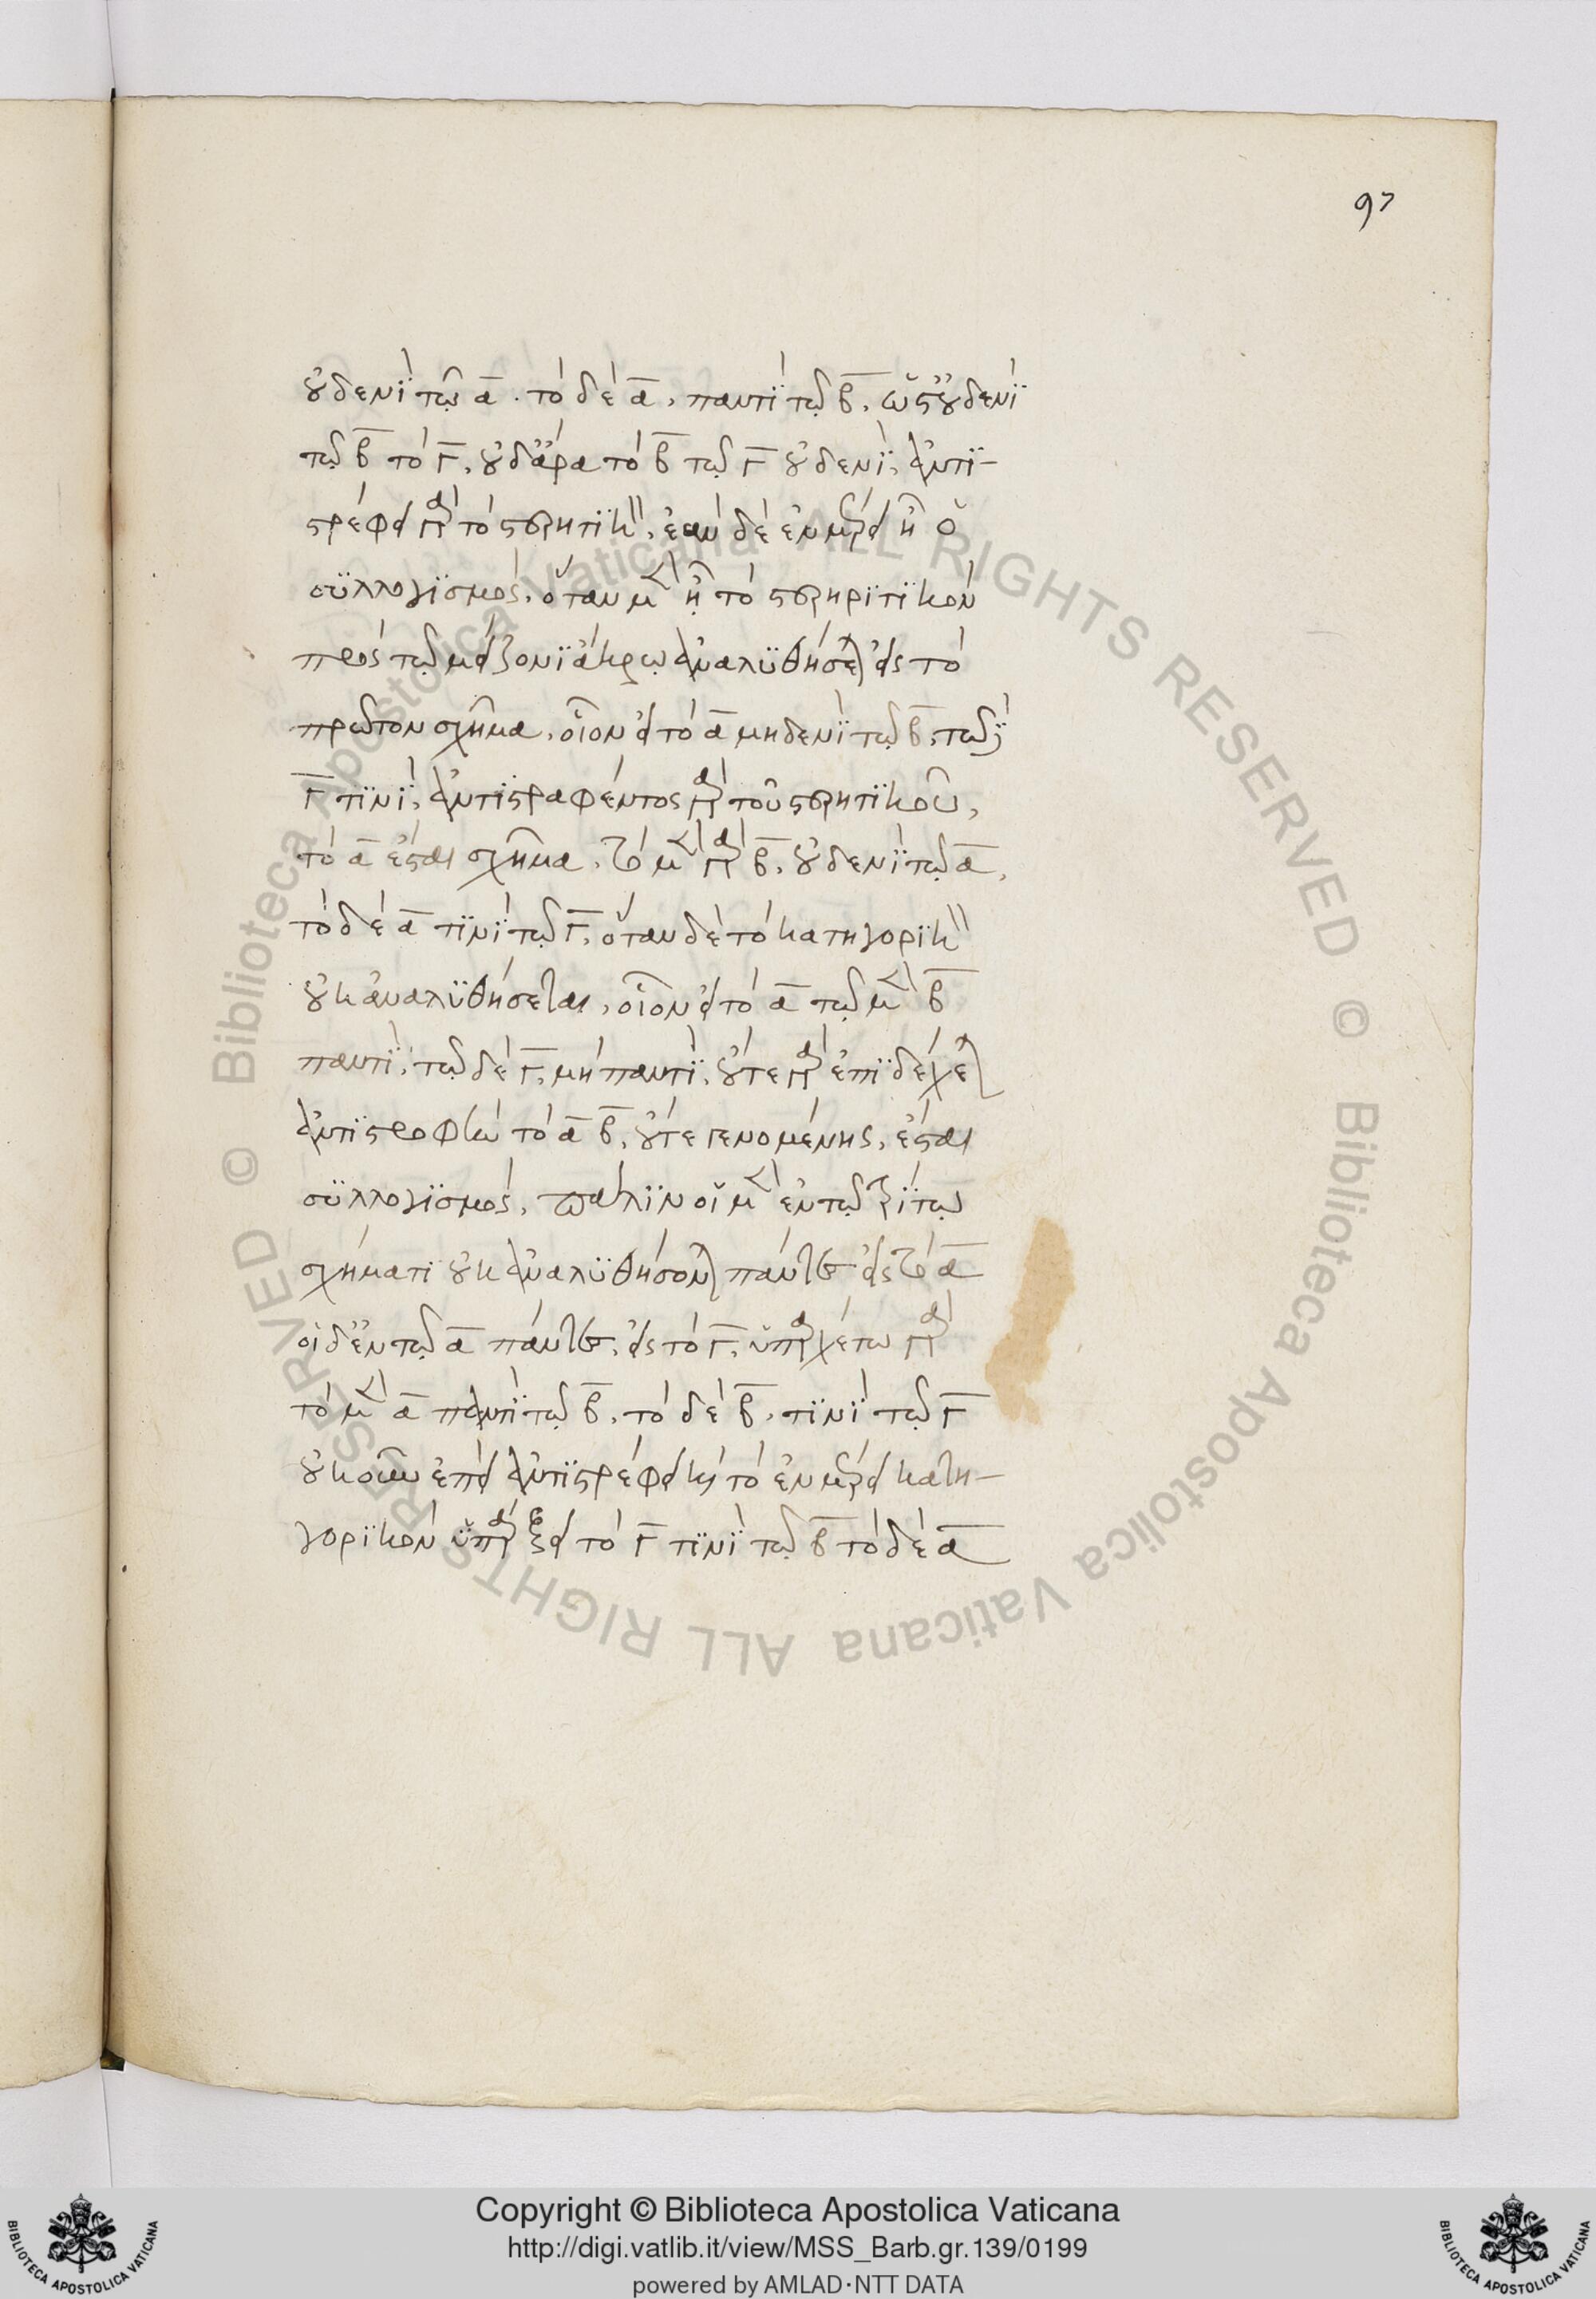 97
οὐδενὶ τῷ α̅. τὸ δὲ α̅, παντὶ τῷ β̅, ὥστ' οὐδενὶ
τῷ β̅ τὸ γ̅, οὐδ' ἄρα τὸ β̅ τῷ γ̅ οὐδενί, ἀντι-
στρέφει γὰρ τὸ στερητικὸν, ἐὰν δὲ ἐν μέρει ᾖ ὁ
συλλογϊσμὸς, ὅταν μὲν ᾖ τὸ στερηρϊτϊκὸν
πρὸς τῷ μείζονι ἄκρῳ ἀναλυθήσεται εἰς τὸ
πρῶτον σχῆμα, οἷον εἰ τὸ α̅ μηδενὶ τῷ β̅, τῷ δὲ
γ̅ τινί, ἀντιστραφέντος γὰρ τοῦ στερητικοῦ,
τὸ α̅ ἔσται σχῆμα, τὸ μὲν γὰρ β̅, οὐδενὶ τῷ α̅,
τὸ δὲ α̅ τινὶ τῷ γ̅, ὅταν δὲ τὸ κατηγορικὸν
οὐκ ἀναλυθήσεται, οἷον εἰ τὸ α̅ τῷ μὲν β̅
παντί, τῷ δὲ γ̅, μὴ παντί, οὔτε γὰρ ἐπιδέχεται
ἀντιστροφὴν τὸ α̅ β̅, οὔτε γενομένης, ἔσται
συλλογισμὸς, πάλιν οἱ μὲν ἐν τῷ τρίτῳ
σχήματι οὐκ ἀναλυθήσονται πάντες εἰς τὸ α̅
οἱ δ' ἐν τῷ α̅ πάντες, εἰς τὸ γ̅, ὑπαρχέτω γὰρ
τὸ μὲν α̅ παντὶ τῷ β̅, τὸ δὲ β̅, τινὶ τῷ γ̅
οὐκοῦν ἐπεὶ ἀντιστρέφει καὶ τὸ ἐν μέρει κατη-
γορικὸν ὑπάρξει τὸ γ̅ τινὶ τῷ β̅ τὸ δὲ α̅
Biblioteca Apostolica Vaticana ALL RIGHTS RESERVED © Biblioteca Apostolica Vaticana ALL RIGHTS RESERVED ©
Copyright © Biblioteca Apostolica Vaticana
http://digi.vatlib.it/view/MSS_Barb.gr.139/0199
powered by AMLAD·NTT DATA
BIBLIOTECA APOSTOLICA VATICANA
BIBLIOTECA APOSTOLICA VATICANA